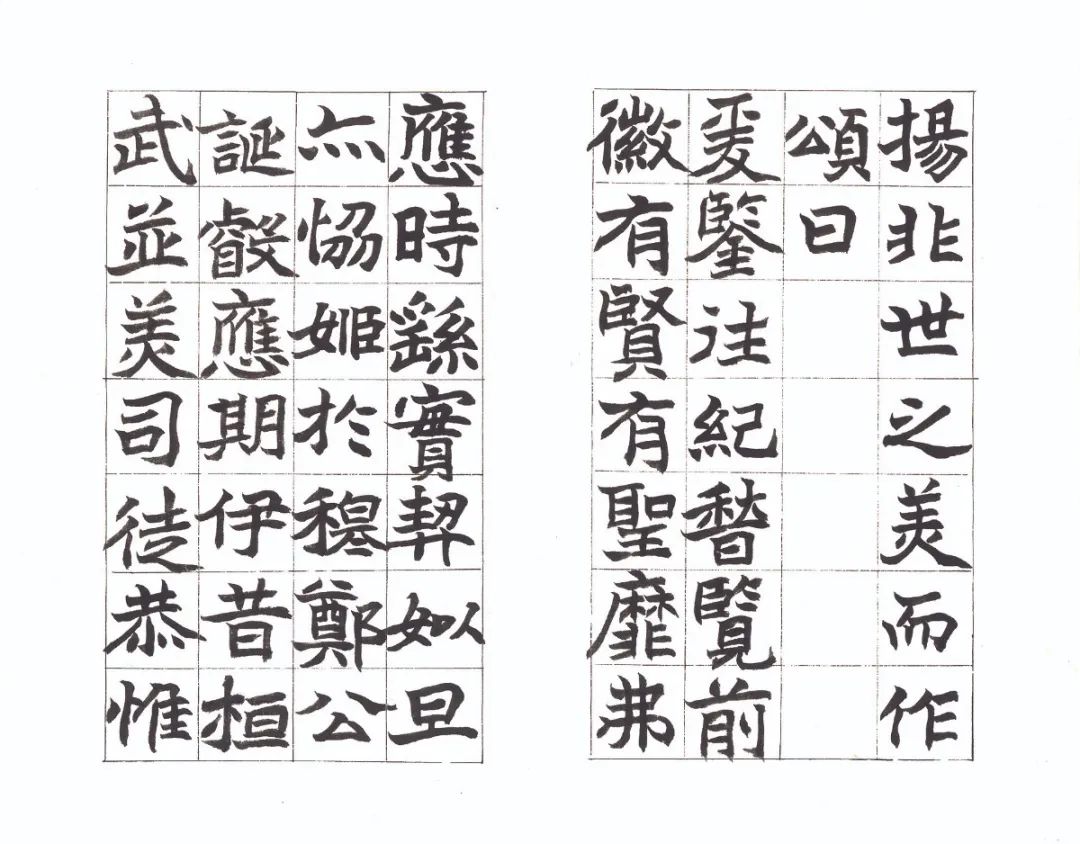 揚非世之美而作
頌曰
爰鑒往紀稽覽前
徽有賢有聖靡弗
應時繇實契姒旦
亦恊姬於穆鄭公
誕叡應期伊昔桓
武並美司徒恭惟